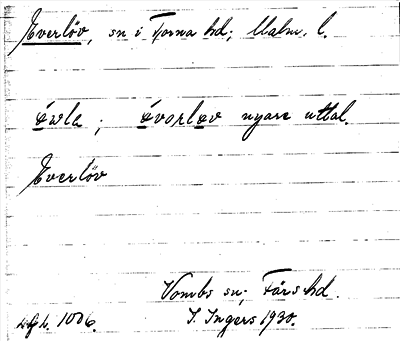 Everlöv, sn i Torna hd; Malm. l.
ó̱wla; ó̱vorlo̱v nyare uttal.
Everlöv
Vombs sn; Färs hd.
1006. I. Ingers 1930.